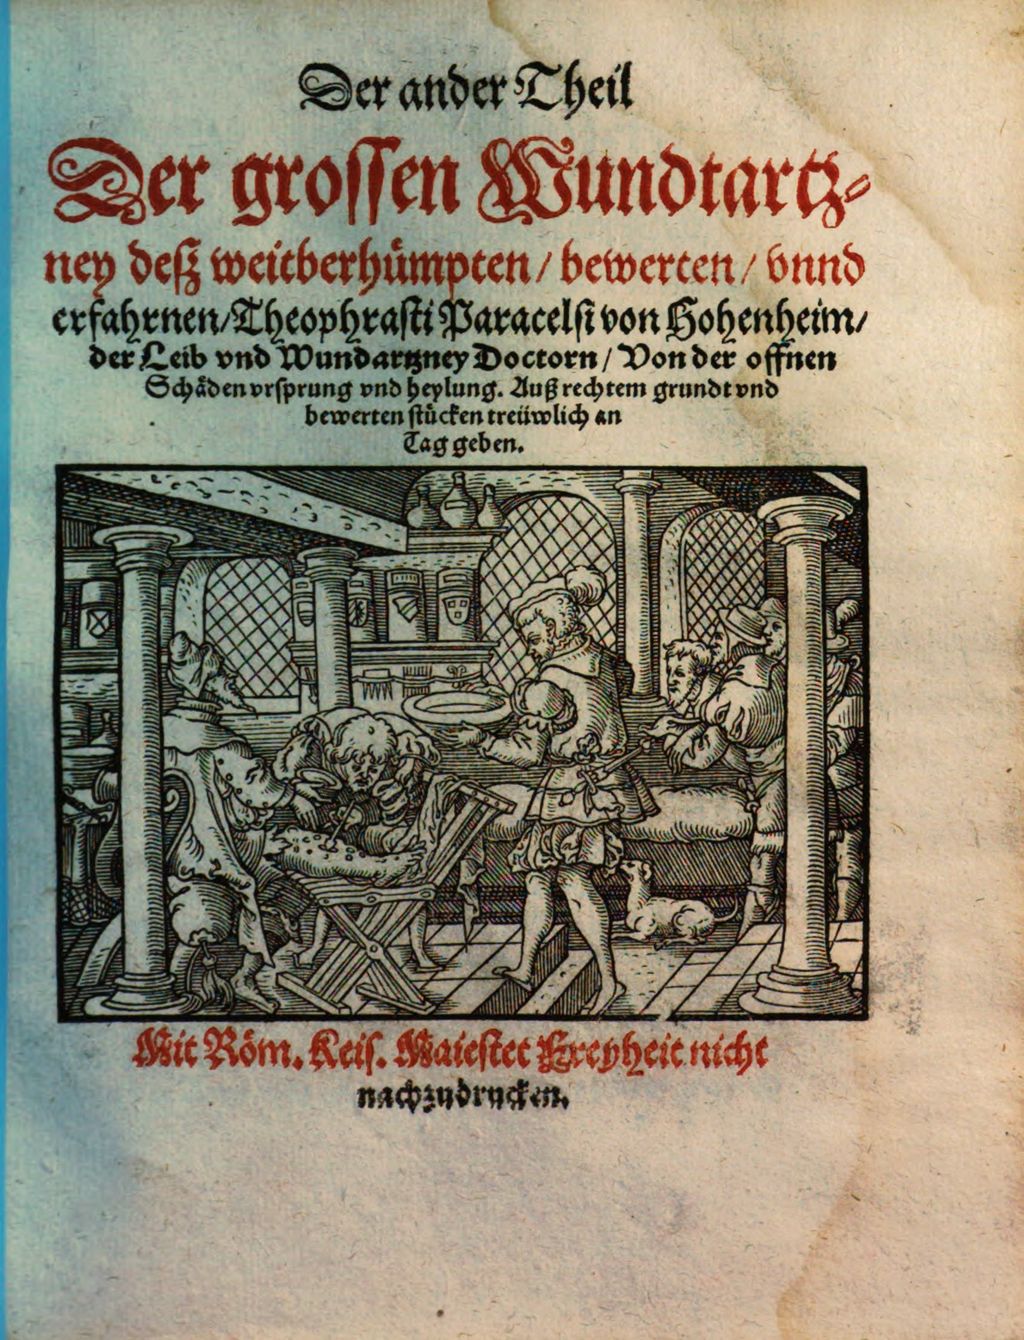 Der ander Theil
Der grossen Wundtartz-
ney deß weitberhümpten / bewerten / vnnd
erfahrnen / Theophrasti Paracelsi von Hohenheim /
der Leib vnd Wundartzney Doctorn / Von der offnen
Schäden vrsprung vnd heylung. Auß rechtem grundt vnd
bewerten stücken treüwlich an
Tag geben.
Mit Röm. Keis. Maiestet Freyheit nicht
nachzudrucken.